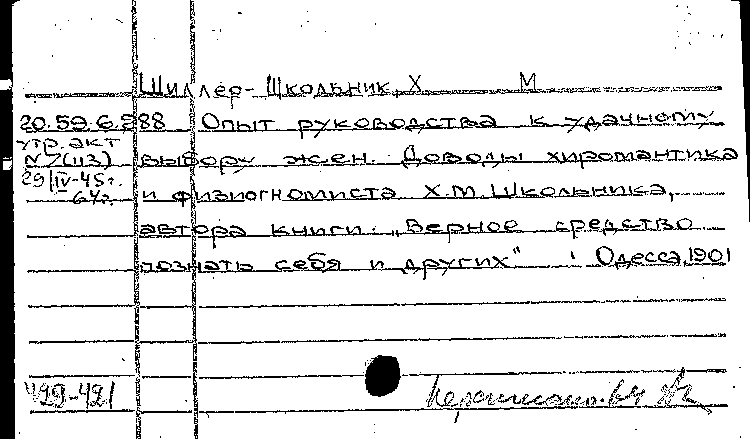 Шиллер-Школьник, Х М
20.59.6.288 Опыт руководства к удачному
утр. акт
№7(113) выбору жен. Доводы хироматика
29/IV-45г. и физиогномиста Х.М. Школьника,
64г.
автора книги: „Верное средство
познать себя и других" Одесса, 1901
429-421 Переписано. 64